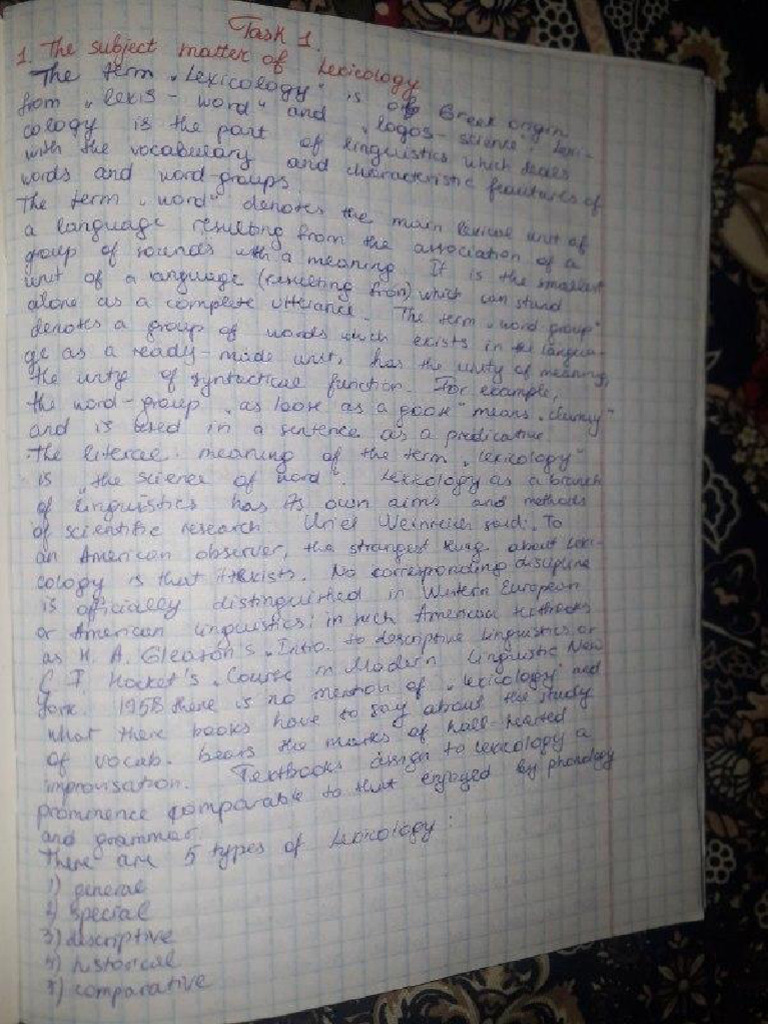 Task 1.
1. The subject matter of Lexicology
The term „Lexicology" is of Greek origin
from „lexis - word" and „logos - science". Lexi-
cology is the part of linguistics which deals
with the vocabulary and characteristic features of
words and word-groups.
The term „word" denotes the main lexical unit of
a language resulting from the association of a
group of sounds with a meaning. It is the smallest
unit of a language (resulting from) which can stand
alone as a complete utterance. The term „word-group"
denotes a group of words which exists in the langua-
ge as a ready-made unit, has the unity of meaning,
the unity of syntactical function. For example,
the word-group „as loose as a goose" means „clumsy"
and is used in a sentence as a predicative.
The literal meaning of the term „Lexicology"
is „the science of word". Lexicology as a branch
of linguistics has its own aims and methods
of scientific research. Uriel Weinreich said: To
an American observer, the strangest thing about Lexi-
cology is that it exists. No corresponding discipline
is officially distinguished in Western European
or American linguistics; in such American textbooks
as H. A. Gleason's „Intro. to descriptive linguistics, or
C. F. Hocket's „Course in Modern Linguistic New
York. 1958 there is no mention of „lexicology" and
what there books have to say about the study
of vocab. bears the marks of half-hearted
improvisation. Textbooks assign to lexicology a
prominence comparable to that enjoyed by phonology
and grammar.
There are 5 types of Lexicology:
1) general
2) special
3) descriptive
4) historical
5) comparative